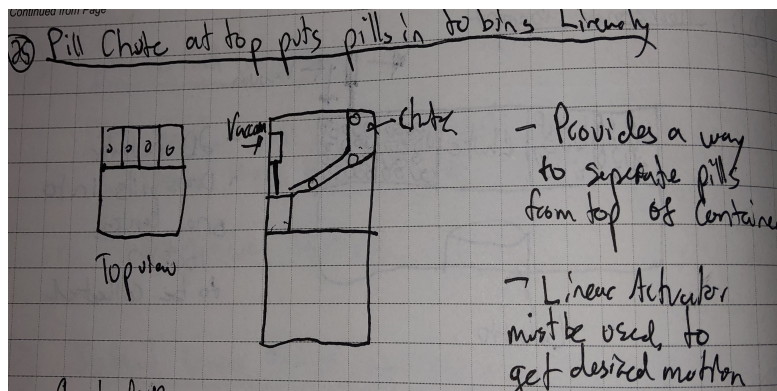 Continued from Page
25 Pill Chute at top puts pills in to bins Linearly
Vacuum
Chute
Top view
- Provides a way
to seperate pills
from top of Container
- Linear Actuator
must be used, to
get desired motion